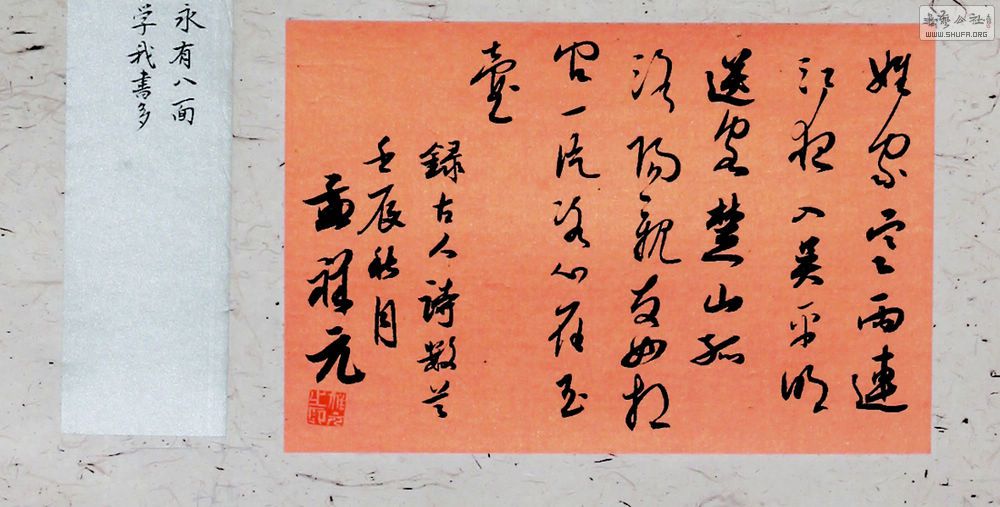 姓家寒雨連
江夜入吴平明
送客楚山孤
洛陽親友如相
問一片冰心在玉
壺
録古人詩數首
壬辰秋月
孟祥元
永有八面
学我書多
書藝公社
WWW.SHUFA.ORG